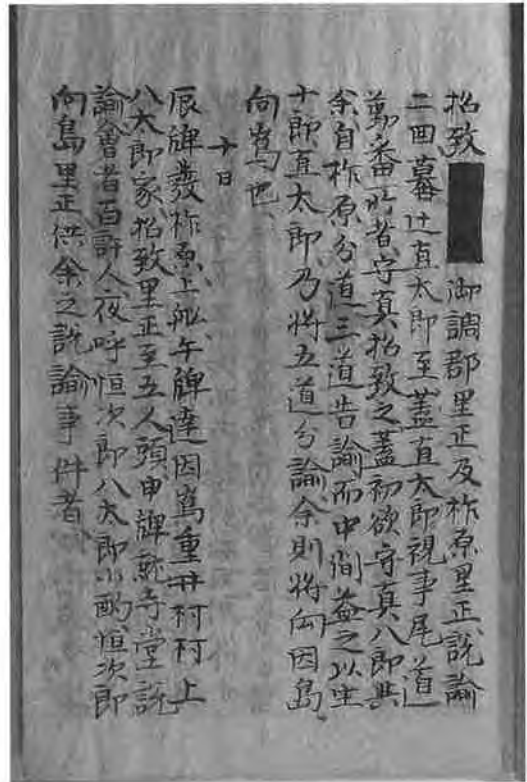 招致 御調郡里正及柞原里正説諭
二回暮辻直太郎至蓋直太郎視事尾道
勤番所者守真招致之蓋初欲守真八郎與
余自柞原分道三道告諭而中間益之以生
十郎直太郎乃将五道分諭余則将向因島
向島也
十日
辰牌発柞原上船午牌達因島重井村村上
八太郎家招致里正至五人頭申牌就寺堂説
諭會者百許人夜呼恒次郎八太郎小酌恒次郎
向島里正供余之説諭事件者